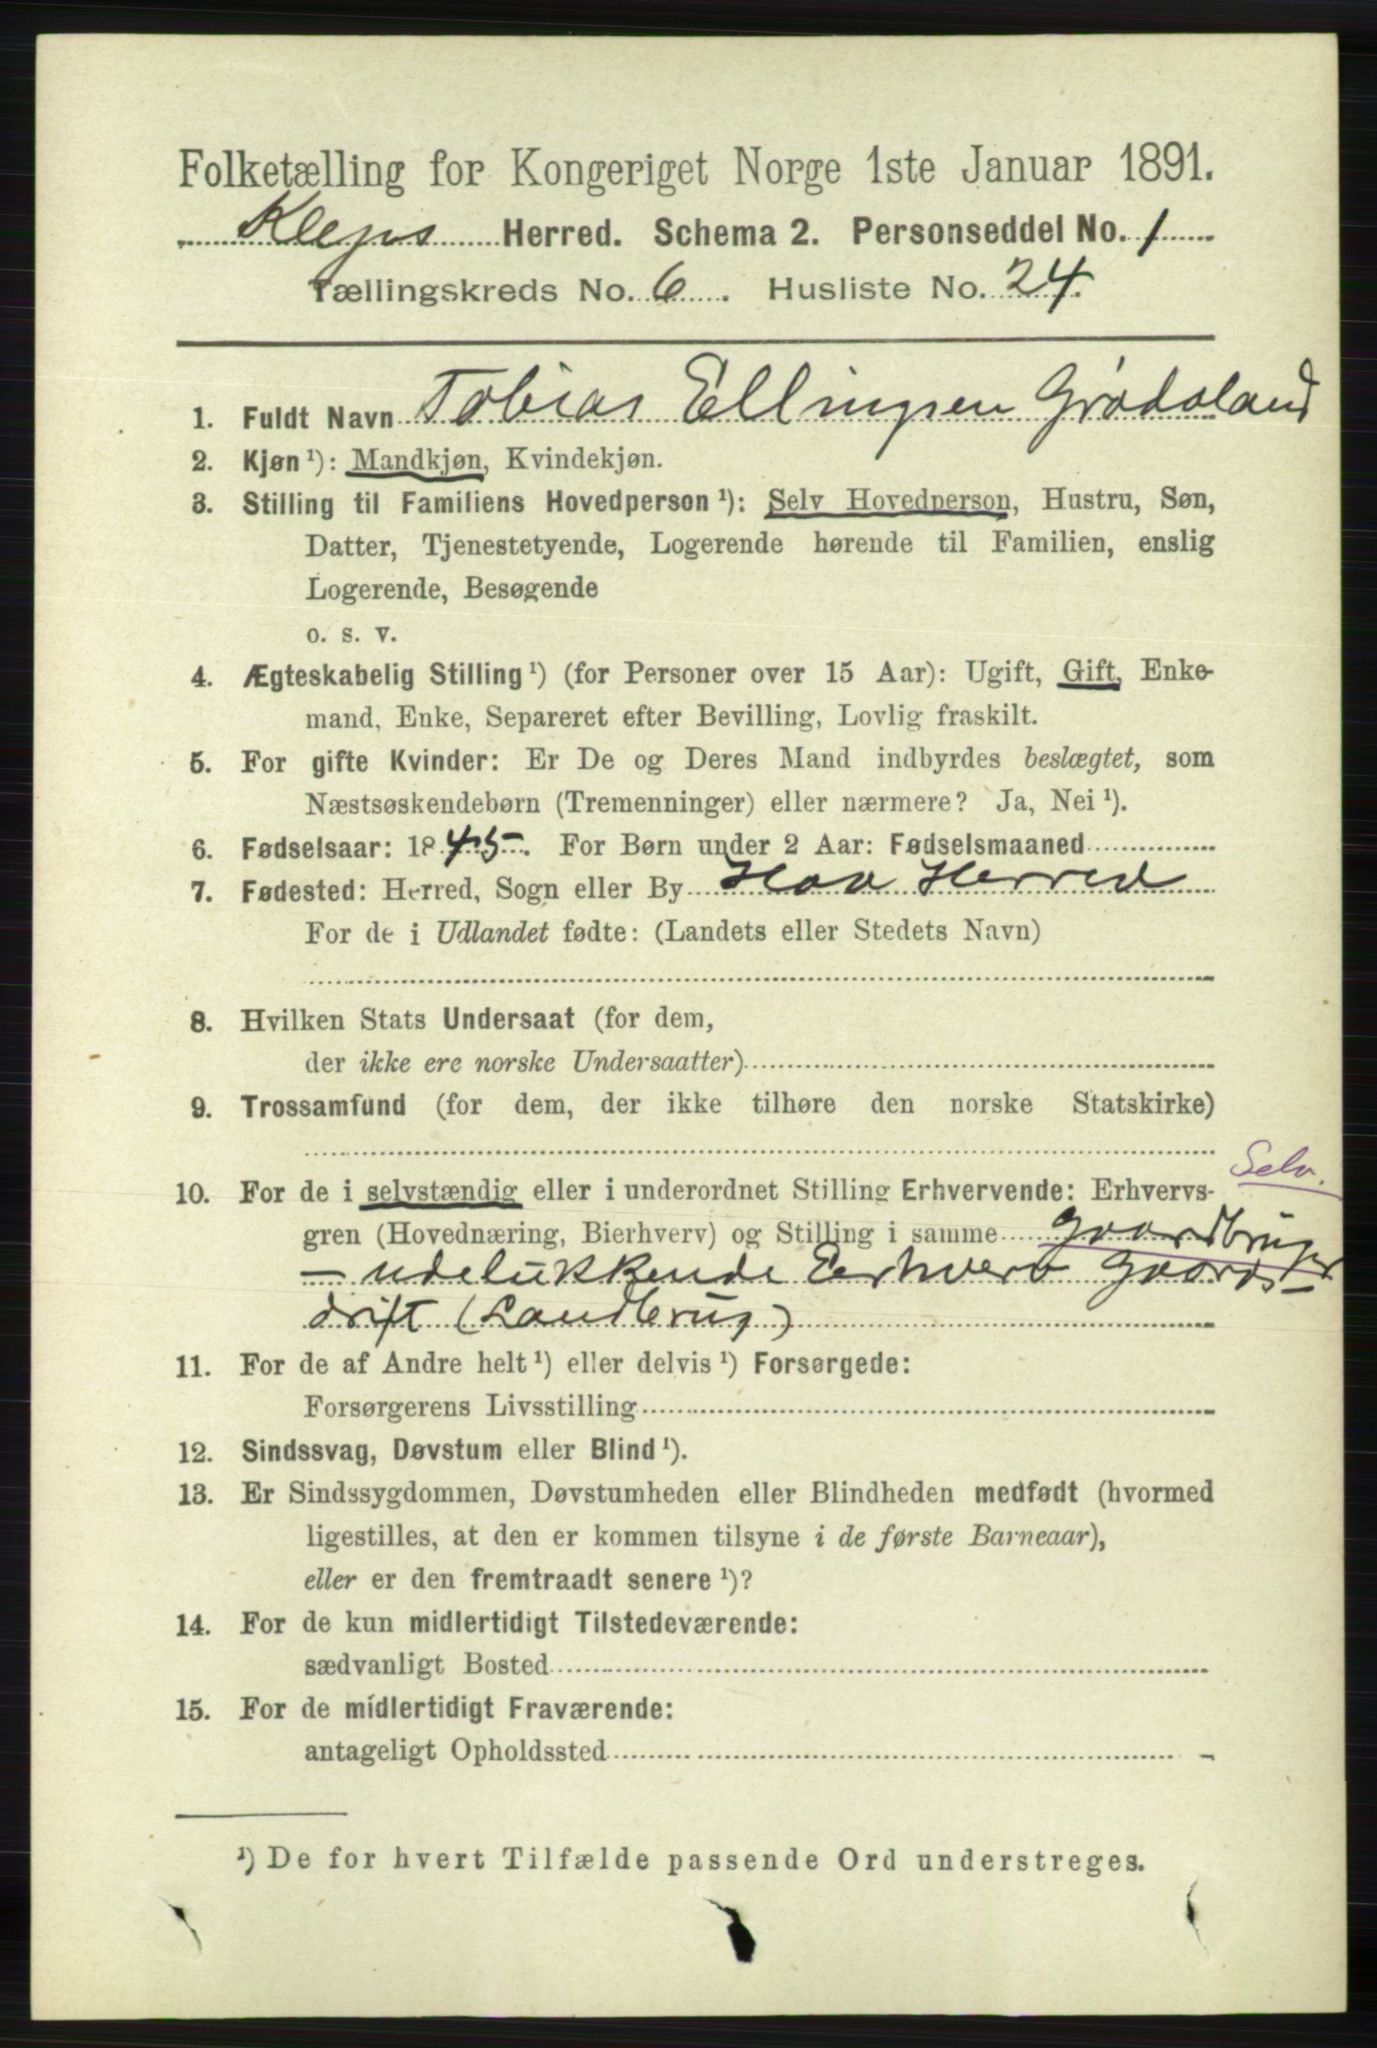 Folketælling for Kongeriget Norge 1ste Januar 1891.
Kleps Herred. Schema 2. Personseddel No. 1
Tællingskreds No. 6. Husliste No. 24.
1. Fuldt Navn Tobias Ellingsen Grødeland
2. Kjøn ¹): Mandkjøn, Kvindekjøn.
3. Stilling til Familiens Hovedperson ¹): Selv Hovedperson, Hustru, Søn,
Datter, Tjenestetyende, Logerende hørende til Familien, enslig
Logerende, Besøgende
o. s. v.
4. Ægteskabelig Stilling ¹) (for Personer over 15 Aar): Ugift, Gift, Enke-
mand, Enke, Separeret efter Bevilling, Lovlig fraskilt.
5. For gifte Kvinder: Er De og Deres Mand indbyrdes beslægtet, som
Næstsøskendebørn (Tremenninger) eller nærmere? Ja, Nei ¹).
6. Fødselsaar: 1845. For Børn under 2 Aar: Fødselsmaaned
7. Fødested: Herred, Sogn eller By Haa Herred
For de i Udlandet fødte: (Landets eller Stedets Navn)
8. Hvilken Stats Undersaat (for dem,
der ikke ere norske Undersaatter)
9. Trossamfund (for dem, der ikke tilhøre den norske Statskirke)
Selv.
10. For de i selvstændig eller i underordnet Stilling Erhvervende: Erhvervs-
gren (Hovednæring, Bierhverv) og Stilling i samme Gaardbruger
- udelukkende Eerhverv Gaards-
drift (Landbrug)
11. For de af Andre helt ¹) eller delvis ¹) Forsørgede:
Forsørgerens Livsstilling
12. Sindssvag, Døvstum eller Blind ¹).
13. Er Sindssygdommen, Døvstumheden eller Blindheden medfødt (hvormed
ligestilles, at den er kommen tilsyne i de første Barneaar),
eller er den fremtraadt senere ¹)?
14. For de kun midlertidigt Tilstedeværende:
sædvanligt Bosted
15. For de midlertidigt Fraværende:
antageligt Opholdssted
¹) De for hvert Tilfælde passende Ord understreges.